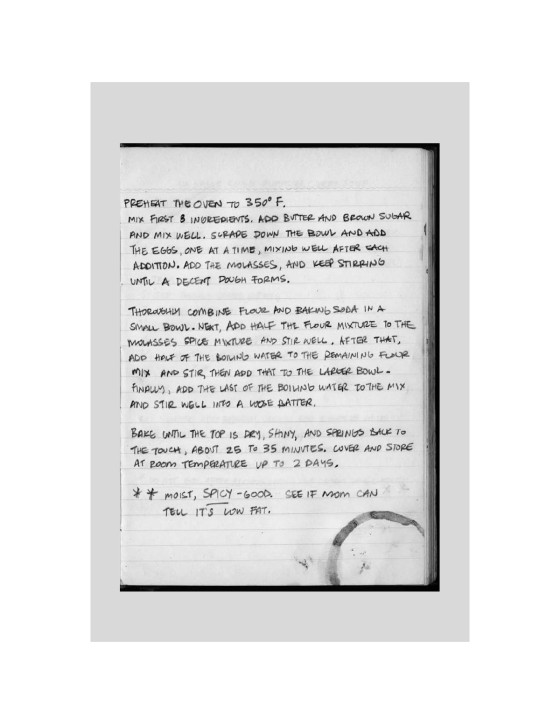 PREHEAT THE OVEN TO 350° F.
MIX FIRST 8 INGREDIENTS. ADD BUTTER AND BROWN SUGAR
AND MIX WELL. SCRAPE DOWN THE BOWL AND ADD
THE EGGS, ONE AT A TIME, MIXING WELL AFTER EACH
ADDITION. ADD THE MOLASSES, AND KEEP STIRRING
UNTIL A DECENT DOUGH FORMS.
THOROUGHLY COMBINE FLOUR AND BAKING SODA IN A
SMALL BOWL. NEXT, ADD HALF THE FLOUR MIXTURE TO THE
MOLASSES SPICE MIXTURE AND STIR WELL. AFTER THAT,
ADD HALF OF THE BOILING WATER TO THE REMAINING FLOUR
MIX AND STIR, THEN ADD THAT TO THE LARGER BOWL.
FINALLY, ADD THE LAST OF THE BOILING WATER TO THE MIX
AND STIR WELL INTO A LOOSE BATTER.
BAKE UNTIL THE TOP IS DRY, SHINY, AND SPRINGS BACK TO
THE TOUCH, ABOUT 25 TO 35 MINUTES. COVER AND STORE
AT ROOM TEMPERATURE UP TO 2 DAYS.
** MOIST, SPICY - GOOD. SEE IF MOM CAN
TELL IT'S LOW FAT.